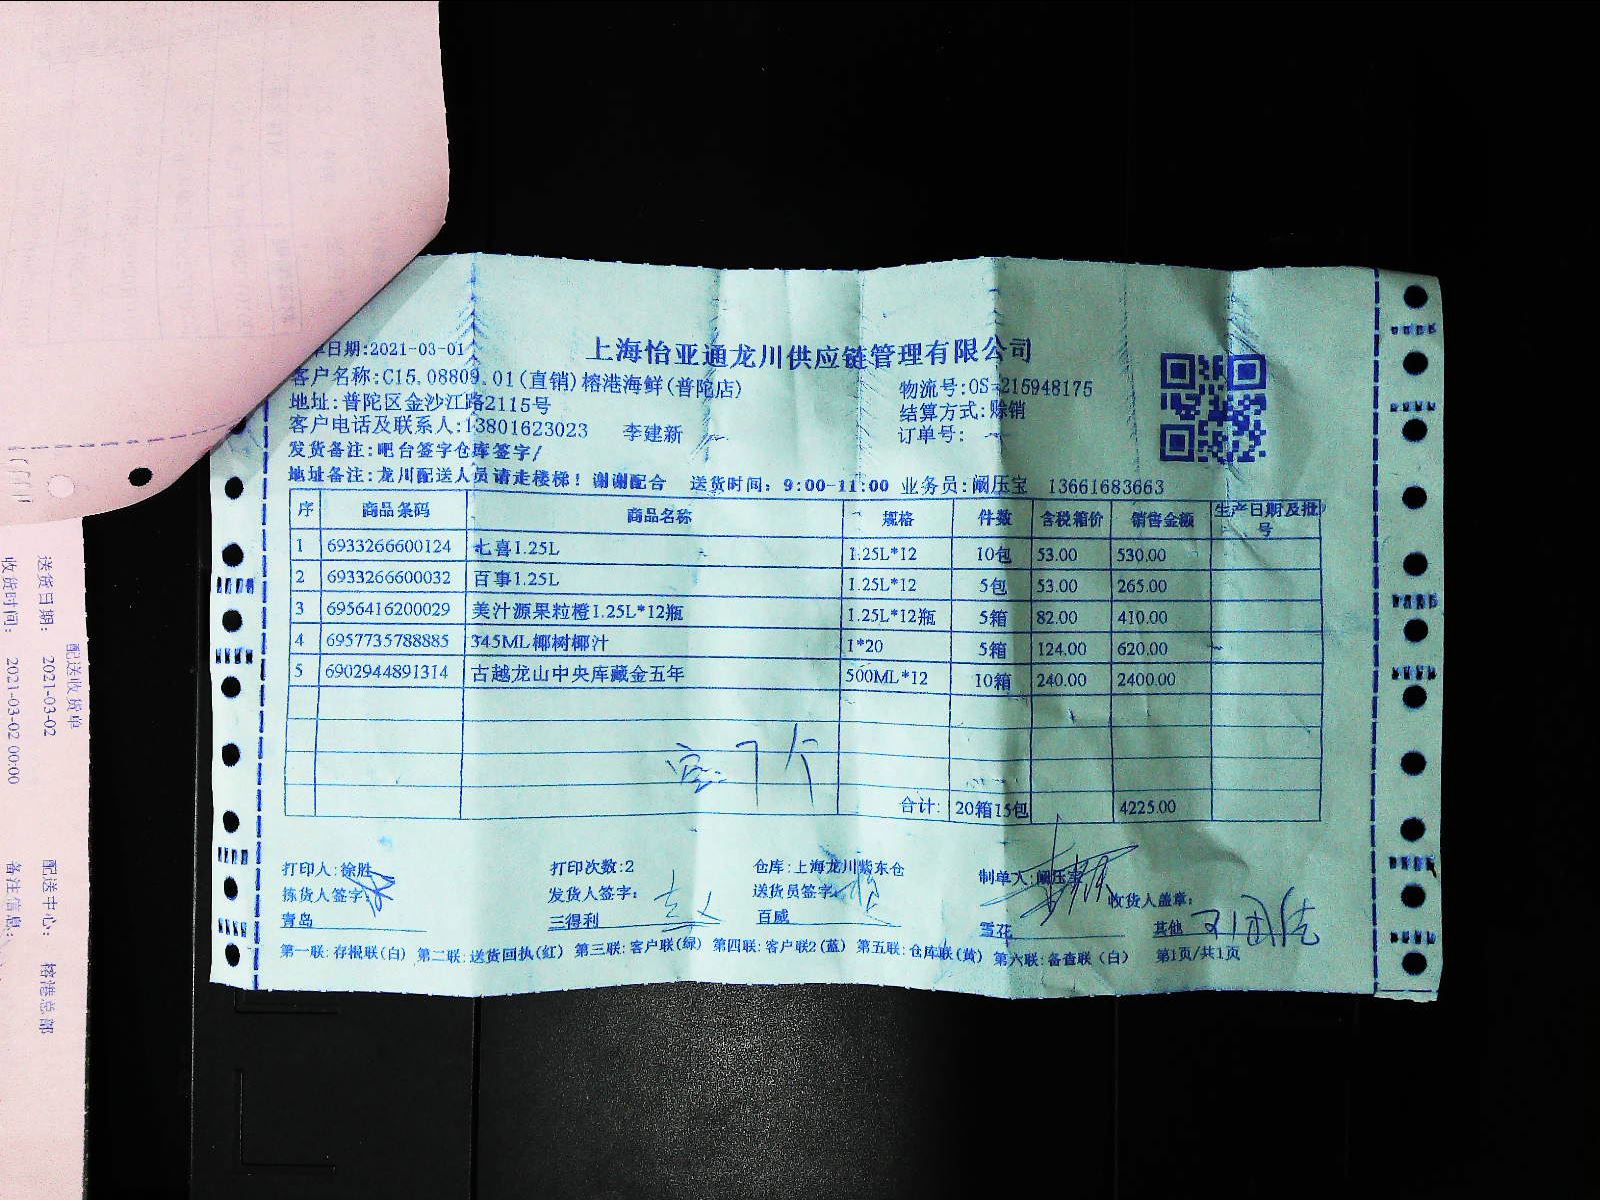 上海怡亚通龙川供应链管理有限公司
单日期:2021-03-01
客户名称:C15.08809.01(直销)榕港海鲜(普陀店)
物流号:OS-215948175
地址:普陀区金沙江路2115号
结算方式:赊销
客户电话及联系人:13801623023 李建新
订单号:
发货备注:吧台签字仓库签字/
地址备注:龙川配送人员请走楼梯!谢谢配合 送货时间:9:00-11:00 业务员:阚压宝 13661683663
序 商品条码 商品名称 规格 件数 含税箱价 销售金额 生产日期及批号
1 6933266600124 七喜1.25L 1.25L*12 10包 53.00 530.00
2 6933266600032 百事1.25L 1.25L*12 5包 53.00 265.00
3 6956416200029 美汁源果粒橙1.25L*12瓶 1.25L*12瓶 5箱 82.00 410.00
4 6957735788885 345ML椰树椰汁 1*20 5箱 124.00 620.00
5 6902944891314 古越龙山中央库藏金五年 500ML*12 10箱 240.00 2400.00
合计: 20箱15包 4225.00
打印人:徐胜 打印次数:2 仓库:上海龙川紫东仓 制单人:阚压宝
拣货人签字: 发货人签字: 送货员签字: 收货人盖章:
青岛 三得利 百威 雪花 其他
第一联:存根联(白) 第二联:送货回执(红) 第三联:客户联(绿) 第四联:客户联2(蓝) 第五联:仓库联(黄) 第六联:备查联(白) 第1页/共1页
配送收货单
送货日期: 2021-03-02 配送中心: 榕港总部
收货时间: 2021-03-02 00:00 备注信息: